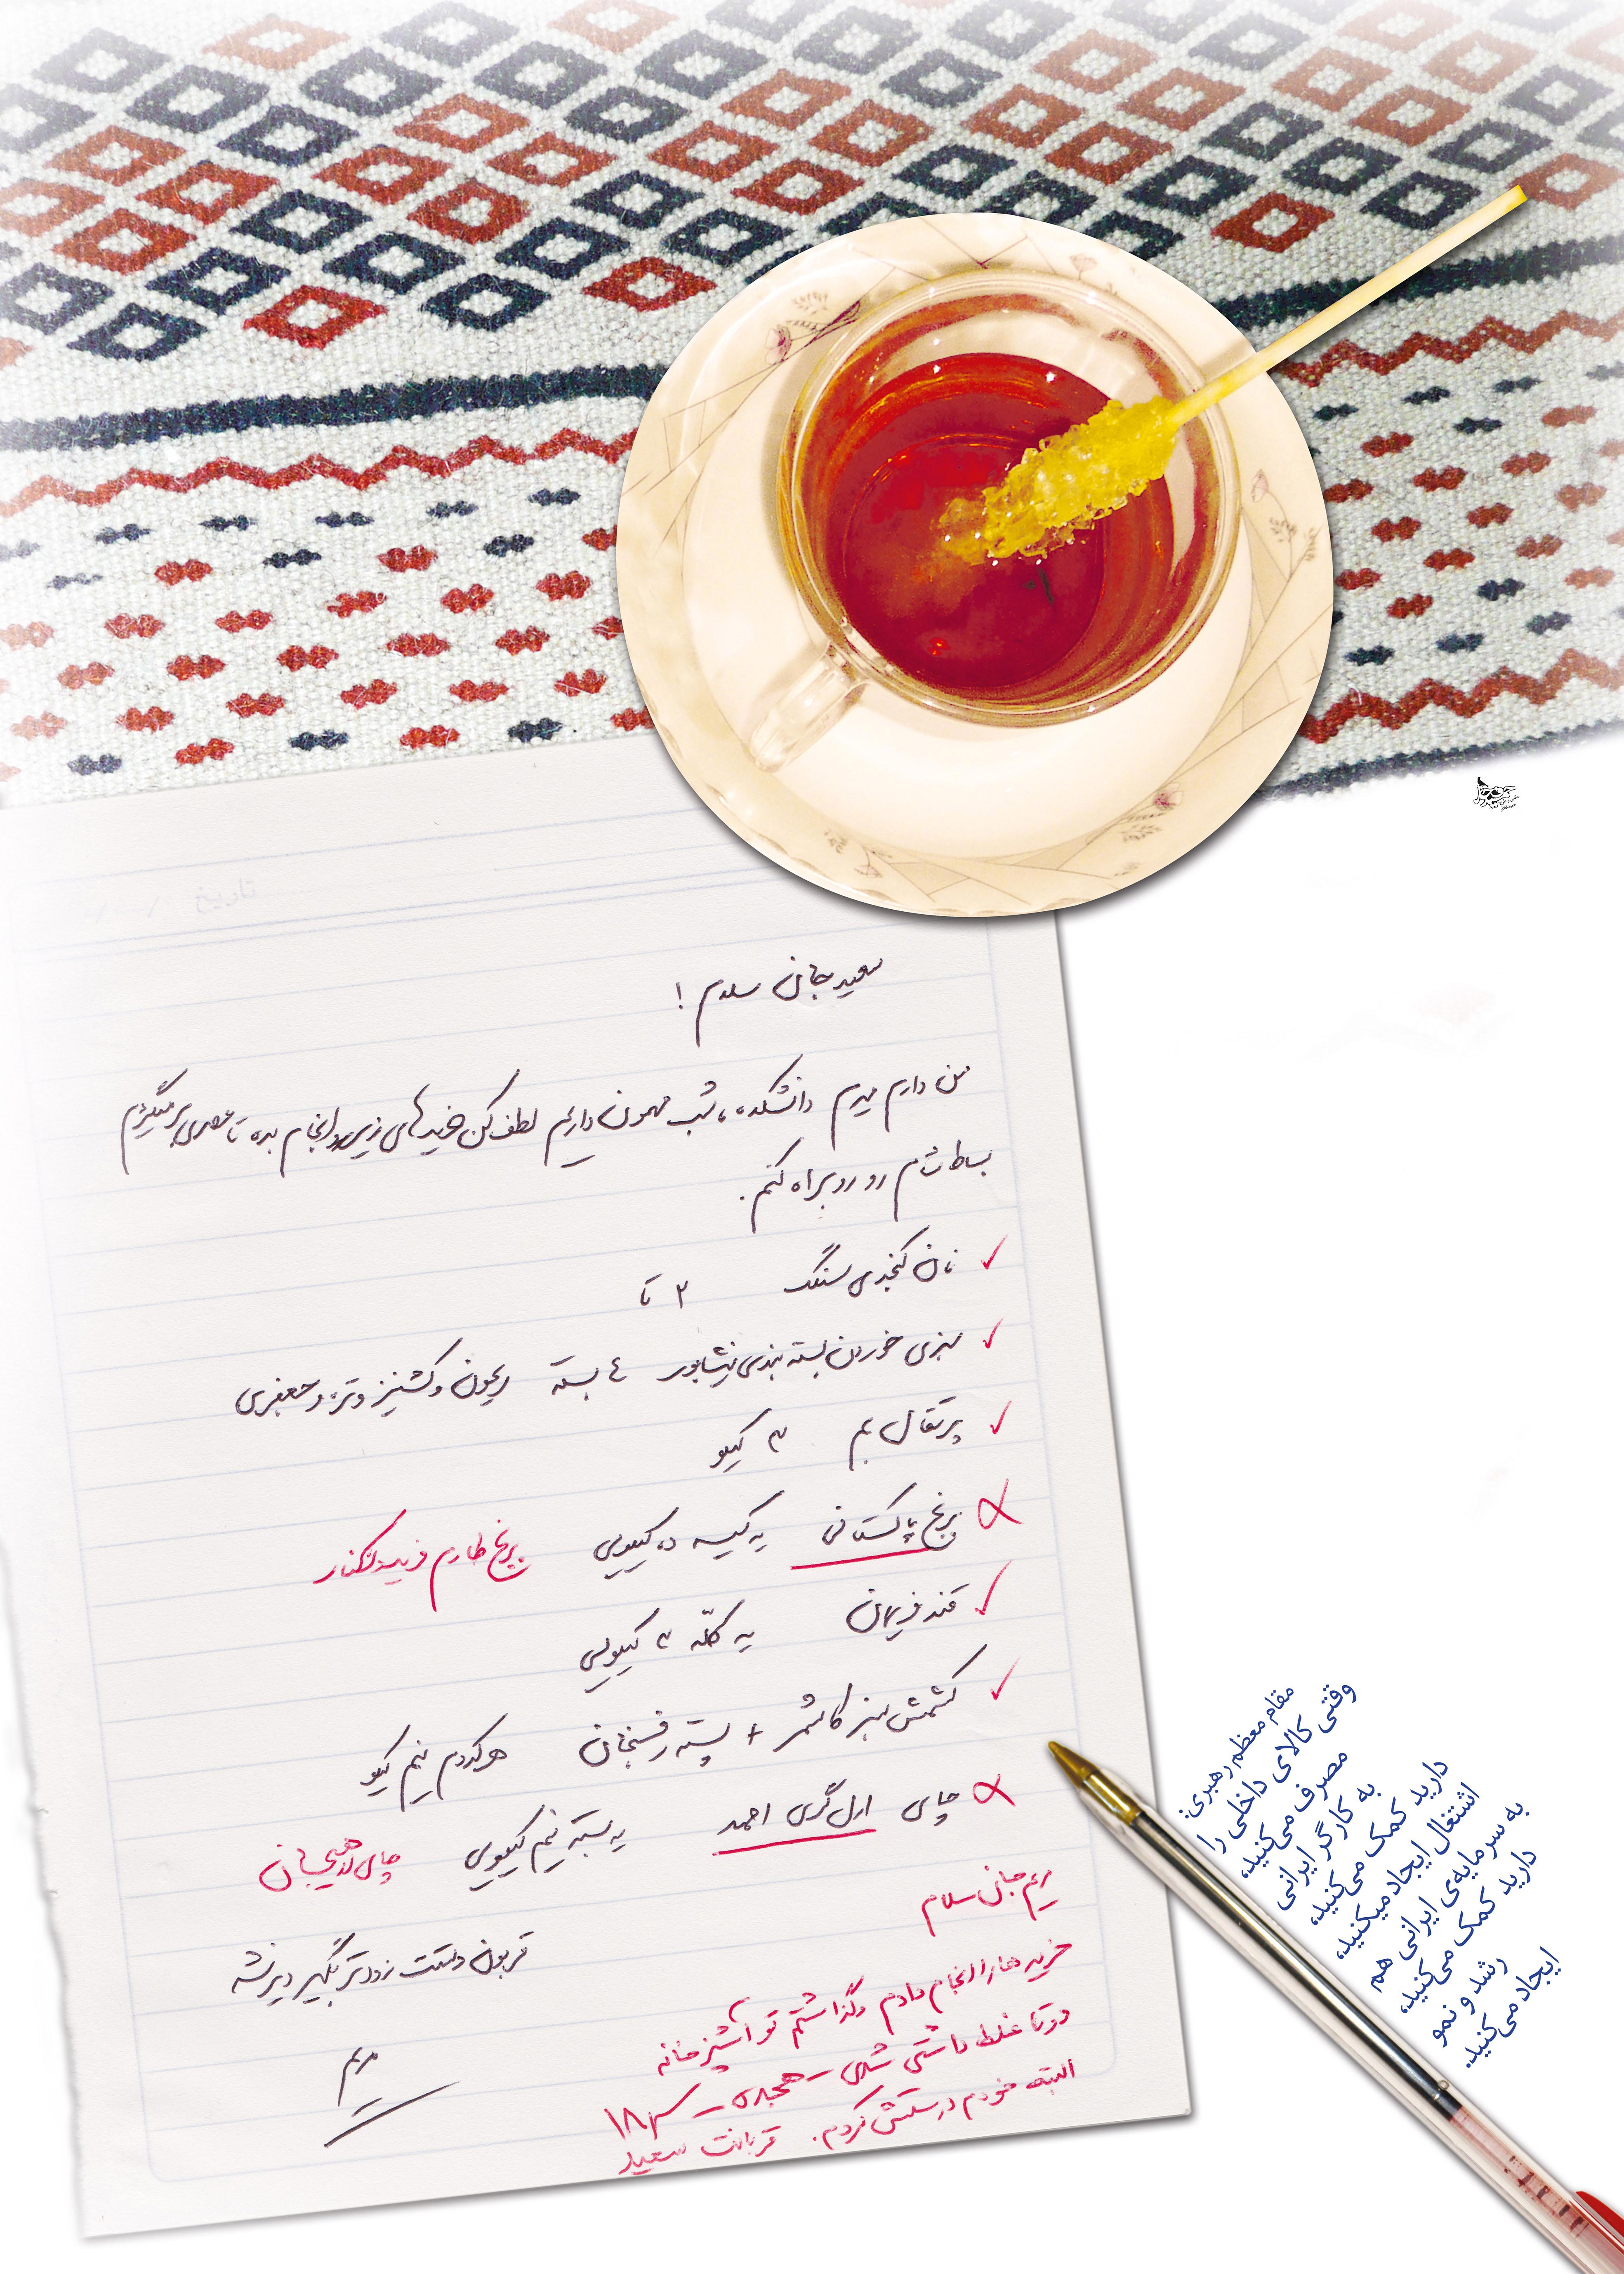 تاریخ
سعید جان سلام !
من دارم میرم دانشکده، شب مهمون داریم لطف کن خریدهای زیر رو انجام بده تا عصری برمیگردم
بساط شام رو روبراه کنم.
نان کنجدی سنگک ۲ تا
سبزی خوردن بسته بندی نیشابور ۴ بسته ریحون و کشنیز و تره و جعفری
پرتقال بم ۳ کیلو
برنج پاکستانی یه کیسه ده کیلویی برنج طارم فریدونکنار
قند فریمان یه کلّه ۲ کیلویی
کشمش سبز کاشمر + پسته رفسنجان هرکدوم نیم کیلو
چای ارل گری احمد یه بسته نیم کیلویی چای لاهیجان
قربون دستت زودتر بگیر دیر نشه
مریم
مریم جان سلام
خریدها را انجام دادم وگذاشتم تو آشپزخانه
دوتا غلط داشتی شدی هجده ۱۸
البته خودم درستش کردم. قربانت سعید
مقام معظم رهبری:
وقتی کالای داخلی را
مصرف می‌کنید،
به کارگر ایرانی
دارید کمک می‌کنید،
اشتغال ایجاد میکنید،
به سرمایه‌ی ایرانی هم
دارید کمک می‌کنید،
رشد و نمو
ایجاد می‌کنید.